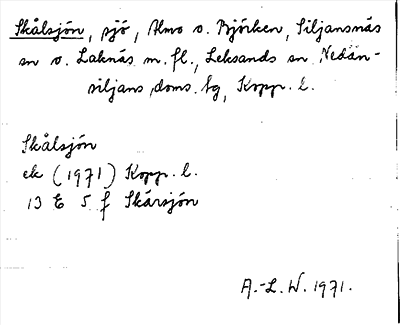 Skålsjön, sjö, Almo o. Björken, Siljansnäs
sn o. Laknäs m. fl., Leksands sn Nedan-
siljans doms. tg, Kopp. l.
Skålsjön
ek (1971) Kopp. l.
13 E 5 f Skårsjön
A.-L. W. 1971.